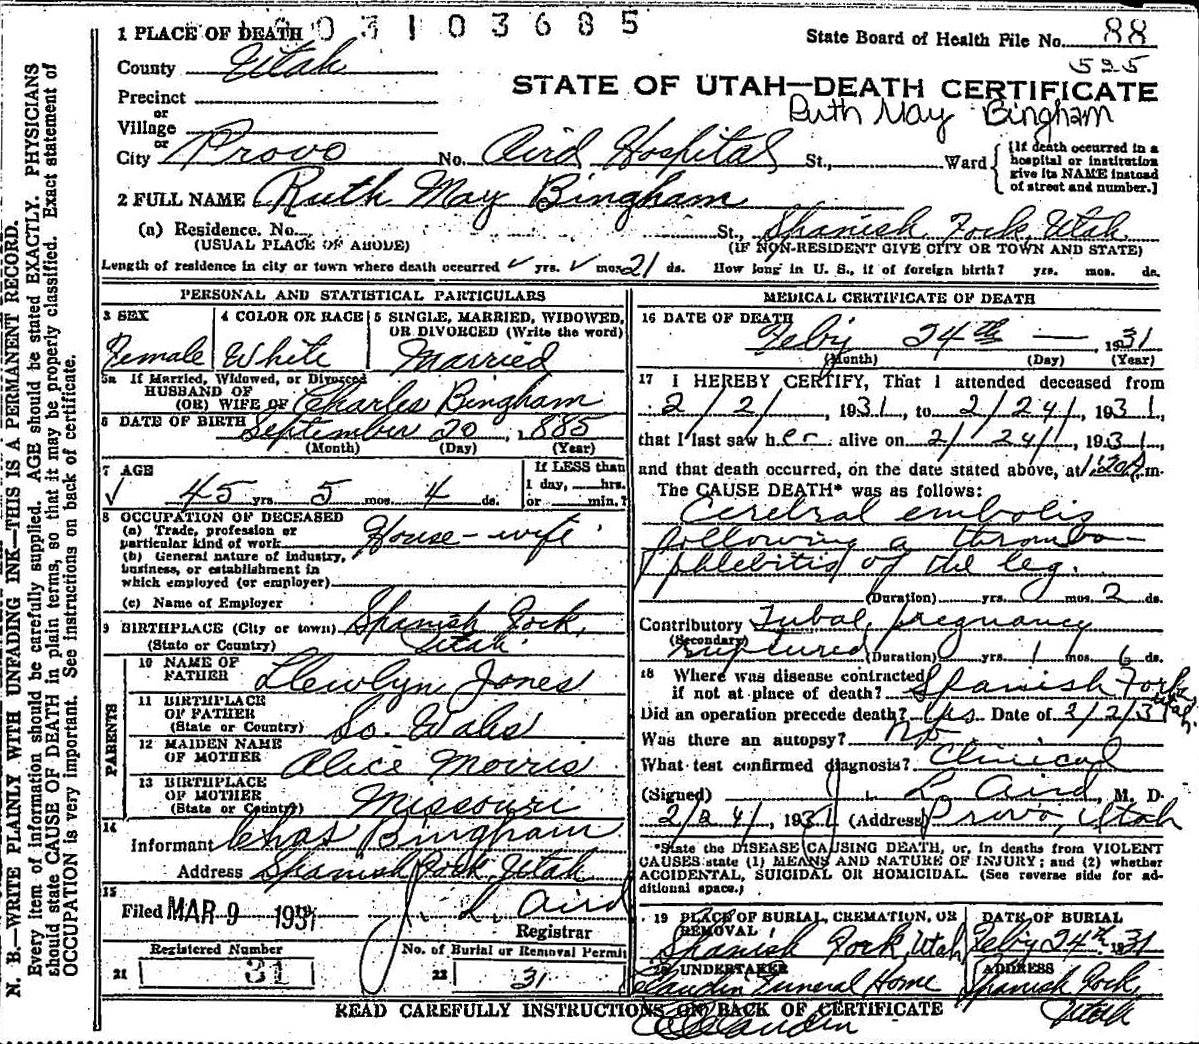 1 PLACE OF DEATH 0 3 1 0 3 6 8 5
State Board of Health File No. 88
525
County Utah
STATE OF UTAH—DEATH CERTIFICATE
Precinct
Ruth May Bingham
or
Village
or
City Provo No. Aird Hospital St., Ward
[If death occurred in a hospital or institution give its NAME instead of street and number.]
2 FULL NAME Ruth May Bingham
(a) Residence. No. St., Spanish Fork, Utah
(USUAL PLACE OF ABODE) (IF NON-RESIDENT GIVE CITY OR TOWN AND STATE)
Length of residence in city or town where death occurred ✓ yrs. ✓ mos. 21 ds. How long in U. S., if of foreign birth? yrs. mos. ds.
PERSONAL AND STATISTICAL PARTICULARS
3 SEX Female
4 COLOR OR RACE White
5 SINGLE, MARRIED, WIDOWED, OR DIVORCED (Write the word) Married
5a If Married, Widowed, or Divorced
HUSBAND OF
(OR) WIFE OF Charles Bingham
6 DATE OF BIRTH September 20, 1885
(Month) (Day) (Year)
7 AGE
✓ 45 yrs. 5 mos. 4 ds.
If LESS than
1 day, hrs.
or min.?
8 OCCUPATION OF DECEASED
(a) Trade, profession or
particular kind of work House-wife
(b) General nature of Industry,
business, or establishment in
which employed (or employer)
(c) Name of Employer
9 BIRTHPLACE (City or town) Spanish Fork,
(State or Country) Utah
PARENTS
10 NAME OF
FATHER Llewlyn Jones
11 BIRTHPLACE
OF FATHER
(State or Country) So. Wales
12 MAIDEN NAME
OF MOTHER Alice Morris
13 BIRTHPLACE
OF MOTHER
(State or Country) Missouri
14
Informant Chas Bingham
Address Spanish Fork, Utah
15
Filed MAR 9 1931 J. L. Aird
Registrar
Registered Number No. of Burial or Removal Permit
21 31 22 31
MEDICAL CERTIFICATE OF DEATH
16 DATE OF DEATH
Feby 24th — , 1931
(Month) (Day) (Year)
17 I HEREBY CERTIFY, That I attended deceased from
2/2/, 1931, to 2/24/, 1931,
that I last saw her alive on 2/24/, 1931,
and that death occurred, on the date stated above, at m.
The CAUSE DEATH* was as follows:
Cerebral embolis
following a thrombo-
phlebitis of the leg.
(Duration) yrs. mos. 2 ds.
Contributory Tubal pregnancy
(Secondary) ruptured (Duration) yrs. 1 mos. 6 ds.
18 Where was disease contracted
if not at place of death? Spanish Fork Utah
Did an operation precede death? Yes. Date of 2/2/31
Was there an autopsy? No
What test confirmed diagnosis? Clinical
(Signed) J. L. Aird, M. D.
2/24/, 1931 (Address) Provo, Utah
*State the DISEASE CAUSING DEATH, or, in deaths from VIOLENT
CAUSES state (1) MEANS AND NATURE OF INJURY; and (2) whether
ACCIDENTAL, SUICIDAL OR HOMICIDAL. (See reverse side for ad-
ditional space.)
19 PLACE OF BURIAL, CREMATION, OR REMOVAL
Spanish Fork, Utah
DATE OF BURIAL
Feby 24th 1931
20 UNDERTAKER
Claudin Funeral Home
ADDRESS
Spanish Fork,
Utah
READ CAREFULLY INSTRUCTIONS ON BACK OF CERTIFICATE
Claudin
N. B.—WRITE PLAINLY WITH UNFADING INK—THIS IS A PERMANENT RECORD.
Every item of information should be carefully supplied. AGE should be stated EXACTLY. PHYSICIANS
should state CAUSE OF DEATH in plain terms, so that it may be properly classified. Exact statement of
OCCUPATION is very important. See instructions on back of certificate.